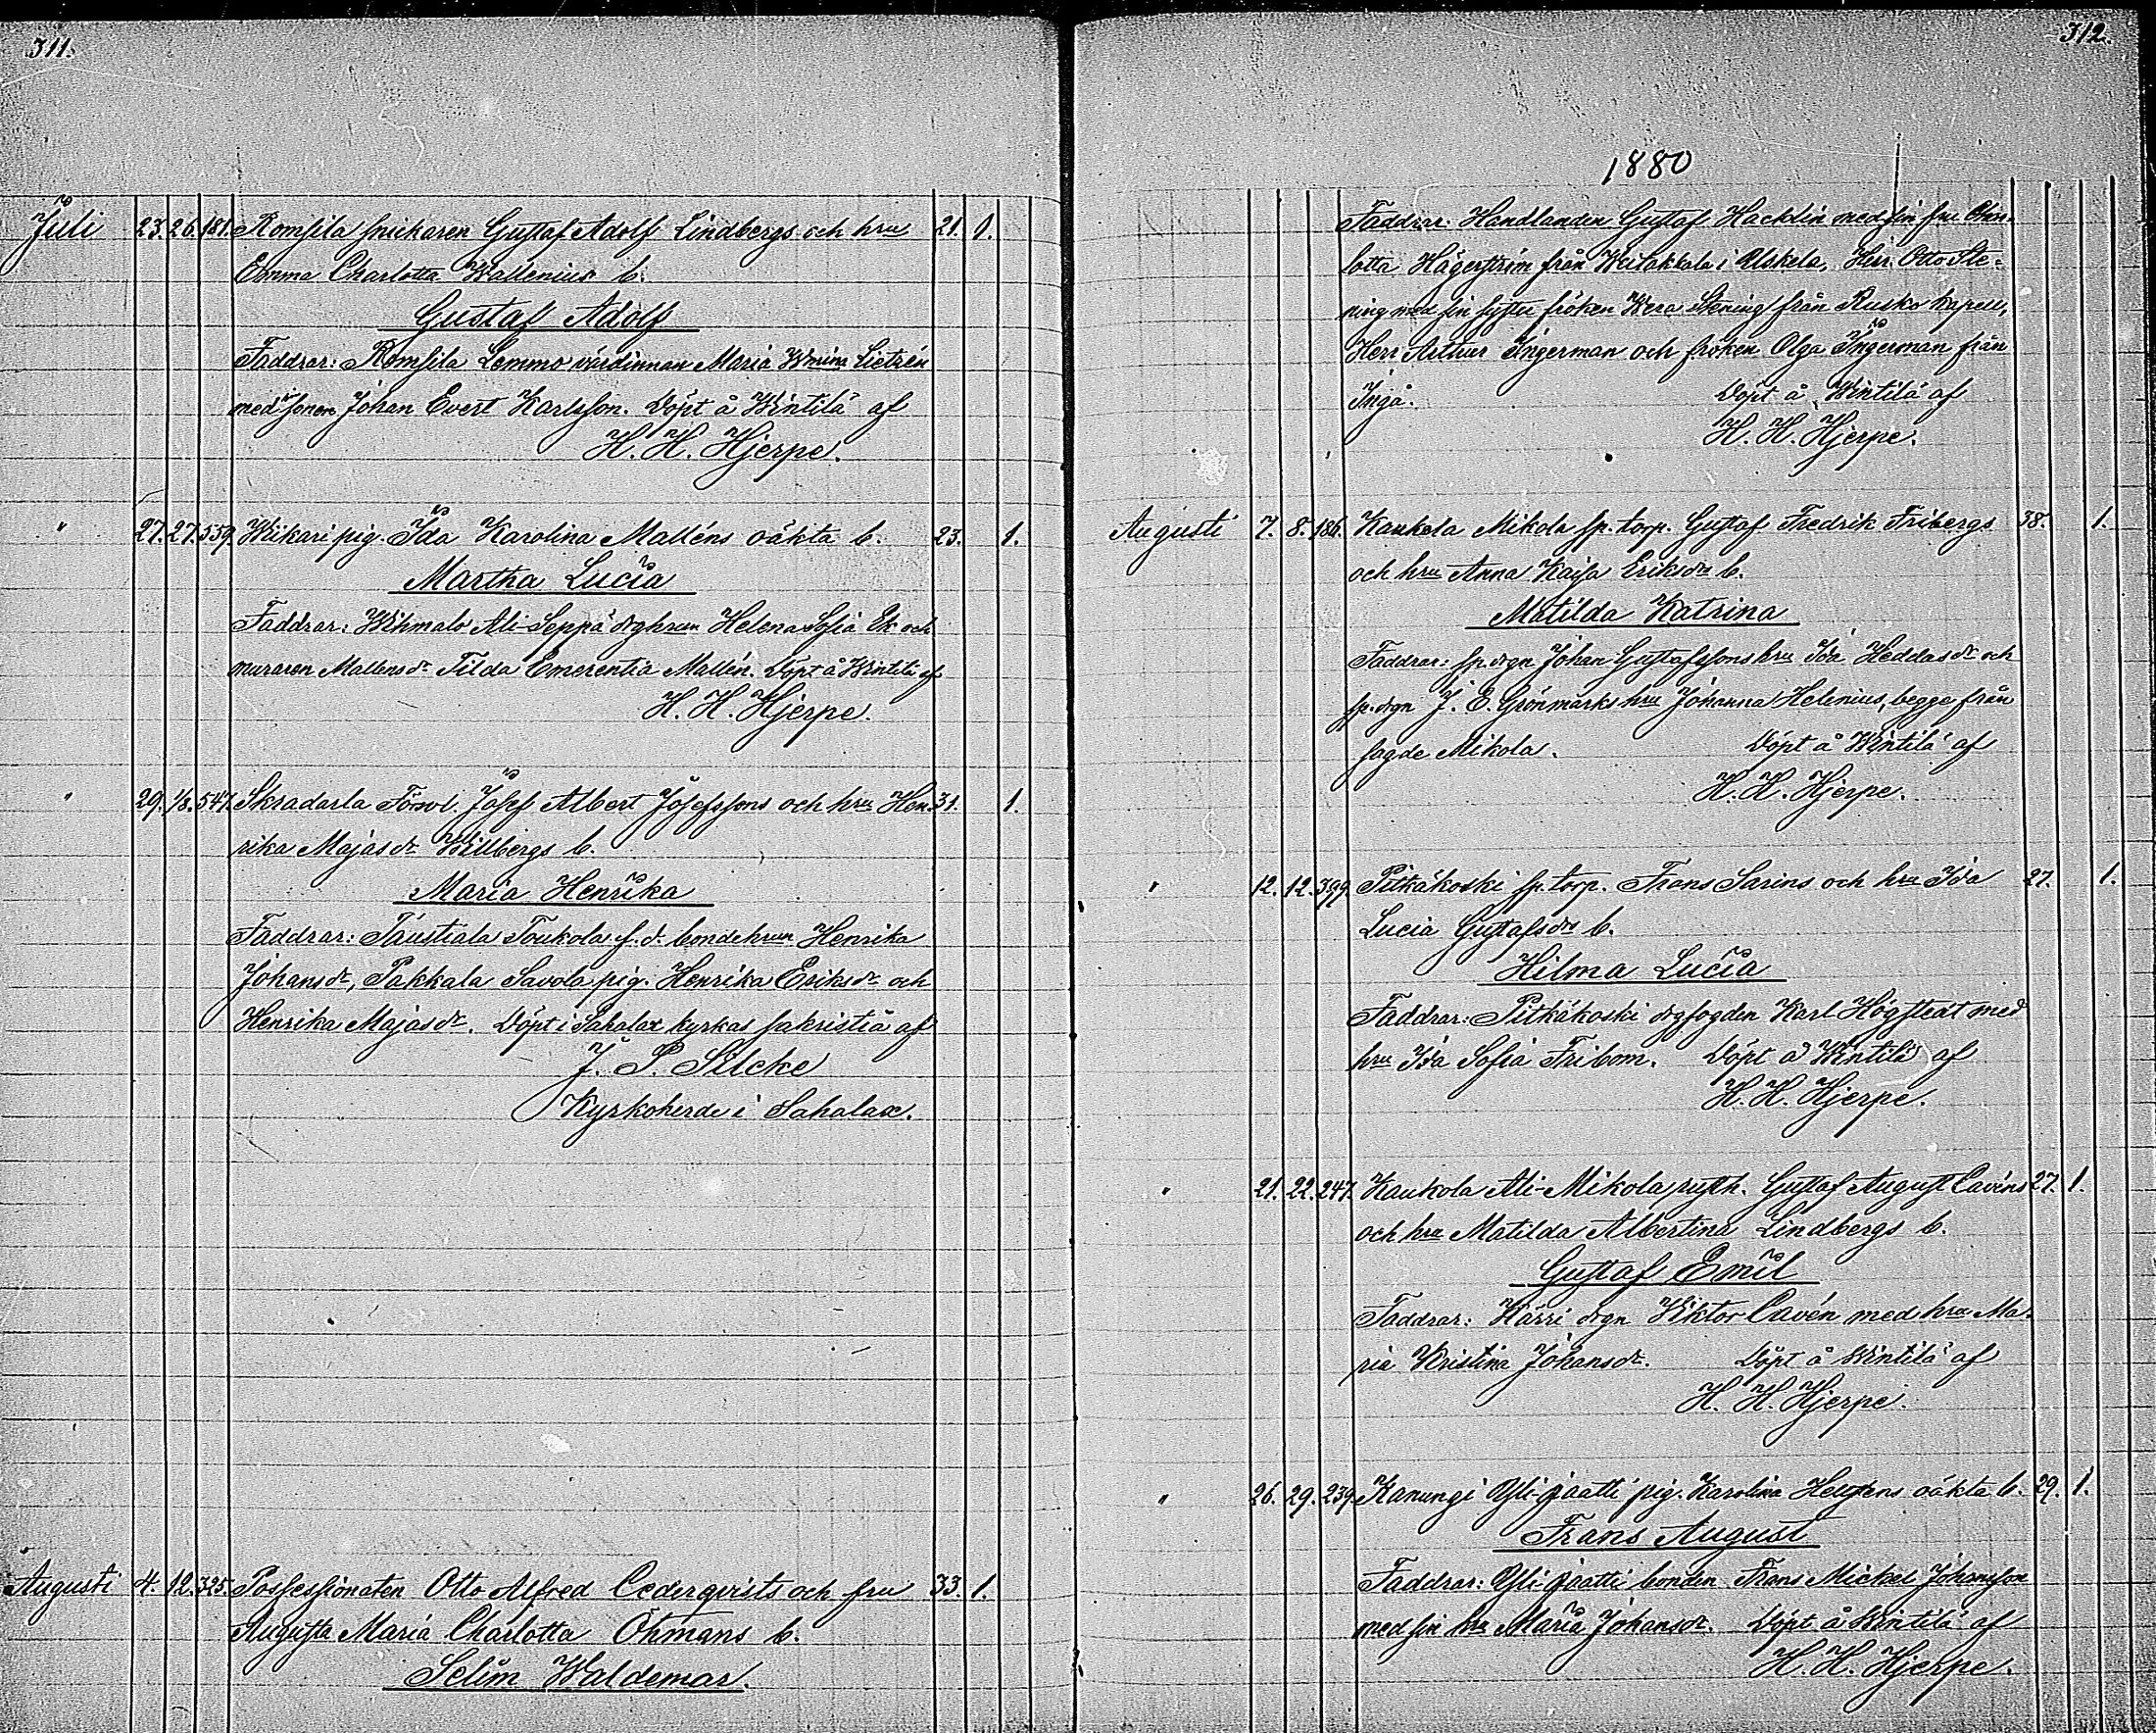 311.
Juli 23. 26. 181. Romsila snickaren Gustaf Adolf Lindbergs och hru 21. 1.
Emma Charlotta Wallenius b.
Gustaf Adolf
Faddrar: Romsila Lemmo värdinnan Maria Wmina Lietzén
med sonen Johan Evert Karlsson. Döpt å Wintilä af
H. H. Hjerpe.
" 27. 27. 559. Wiikari pig. Ida Karolina Malléns oäkta b. 23. 1.
Martha Lucia
Faddrar: Wihmalo Ali-Seppä drghrun Helena Sofia Ek och
muraren Mallens dr Tilda Emerentia Mallén. Döpt å Wintilä af
H. H. Hjerpe.
" 29. 1/8. 547. Skradarla Johan Albert Josefssons och hru Hen- 31. 1.
rika Majasdr Willbergs b.
Maria Henrika
Faddrar: Taustiala Toukola f. d. bondehrun Henrika
Johansdr, Pakkala Savola pig. Henrika Eriksdr och
Henrika Majasdr. Döpt i Sahalax kyrkas sakristia af
J. P. Silcke
Kyrkoherde i Sahalax.
Augusti 4. 12. 325. Possessionaten Otto Alfred Cederqvists och fru 33. 1.
Augusta Maria Charlotta Öhmans b.
Selim Waldemar.
312.
1880
Faddrar: Handlanden Gustaf Hacklin med sin fru Char-
lotta Hägerström från i Uskela, Herr Otto Ste-
ning med sin syster fröken Wera Stening från Rusko kapell,
Herr Arthur Ingerman och fröken Olga Ingerman från
Ingå. Döpt å Wintilä af
H. H. Hjerpe.
Augusti 7. 8. 186. Kaukola Mikola sp. torp. Gustaf Fredrik Fribergs 38. 1.
och hru Anna Kaisa Eriksdrs b.
Matilda Katrina
Faddrar: sp. drgn Johan Gustafssons hru Ida Heddasdr och
sp. drgn J. E. Grönmarks hru Johanna Helenius, begge från
sagde Mikola. Döpt å Wintilä af
H. H. Hjerpe.
" 12. 12. 399. Pitkäkoski sp. torp. Frans Sarins och hru Ida 27. 1.
Lucia Gustafsdrs b.
Hilma Lucia
Faddrar: Pitkäkoski drgfogden Karl Högstedt med
hru Ida Sofia Fribom. Döpt å Wintilä af
H. H. Hjerpe.
" 21. 22. 247. Kaukola Ali-Mikola rusth. Gustaf August Cavéns 27. 1.
och hru Matilda Albertina Lindbergs b.
Gustaf Emil
Faddrar: Härri drgn Wiktor Cavén med hru Ma-
ria Kristina Johansdr. Döpt å Wintilä af
H. H. Hjerpe.
" 26. 29. 239. Kanungi Yli-Jaatti pig. Karolina oäkta b. 29. 1.
Frans August
Faddrar: Yli-Jaatti bonden Frans Mickel Johansson
med sin hru Maria Johansdr. Döpt å Wintilä af
H. H. Hjerpe.